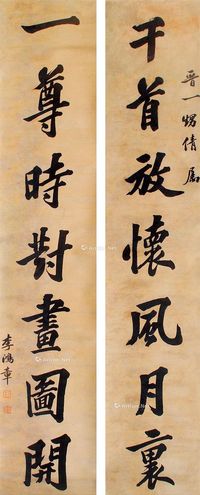 晋一甥倩属
千首放懷風月裏
一尊時對畫圖開
李鴻章